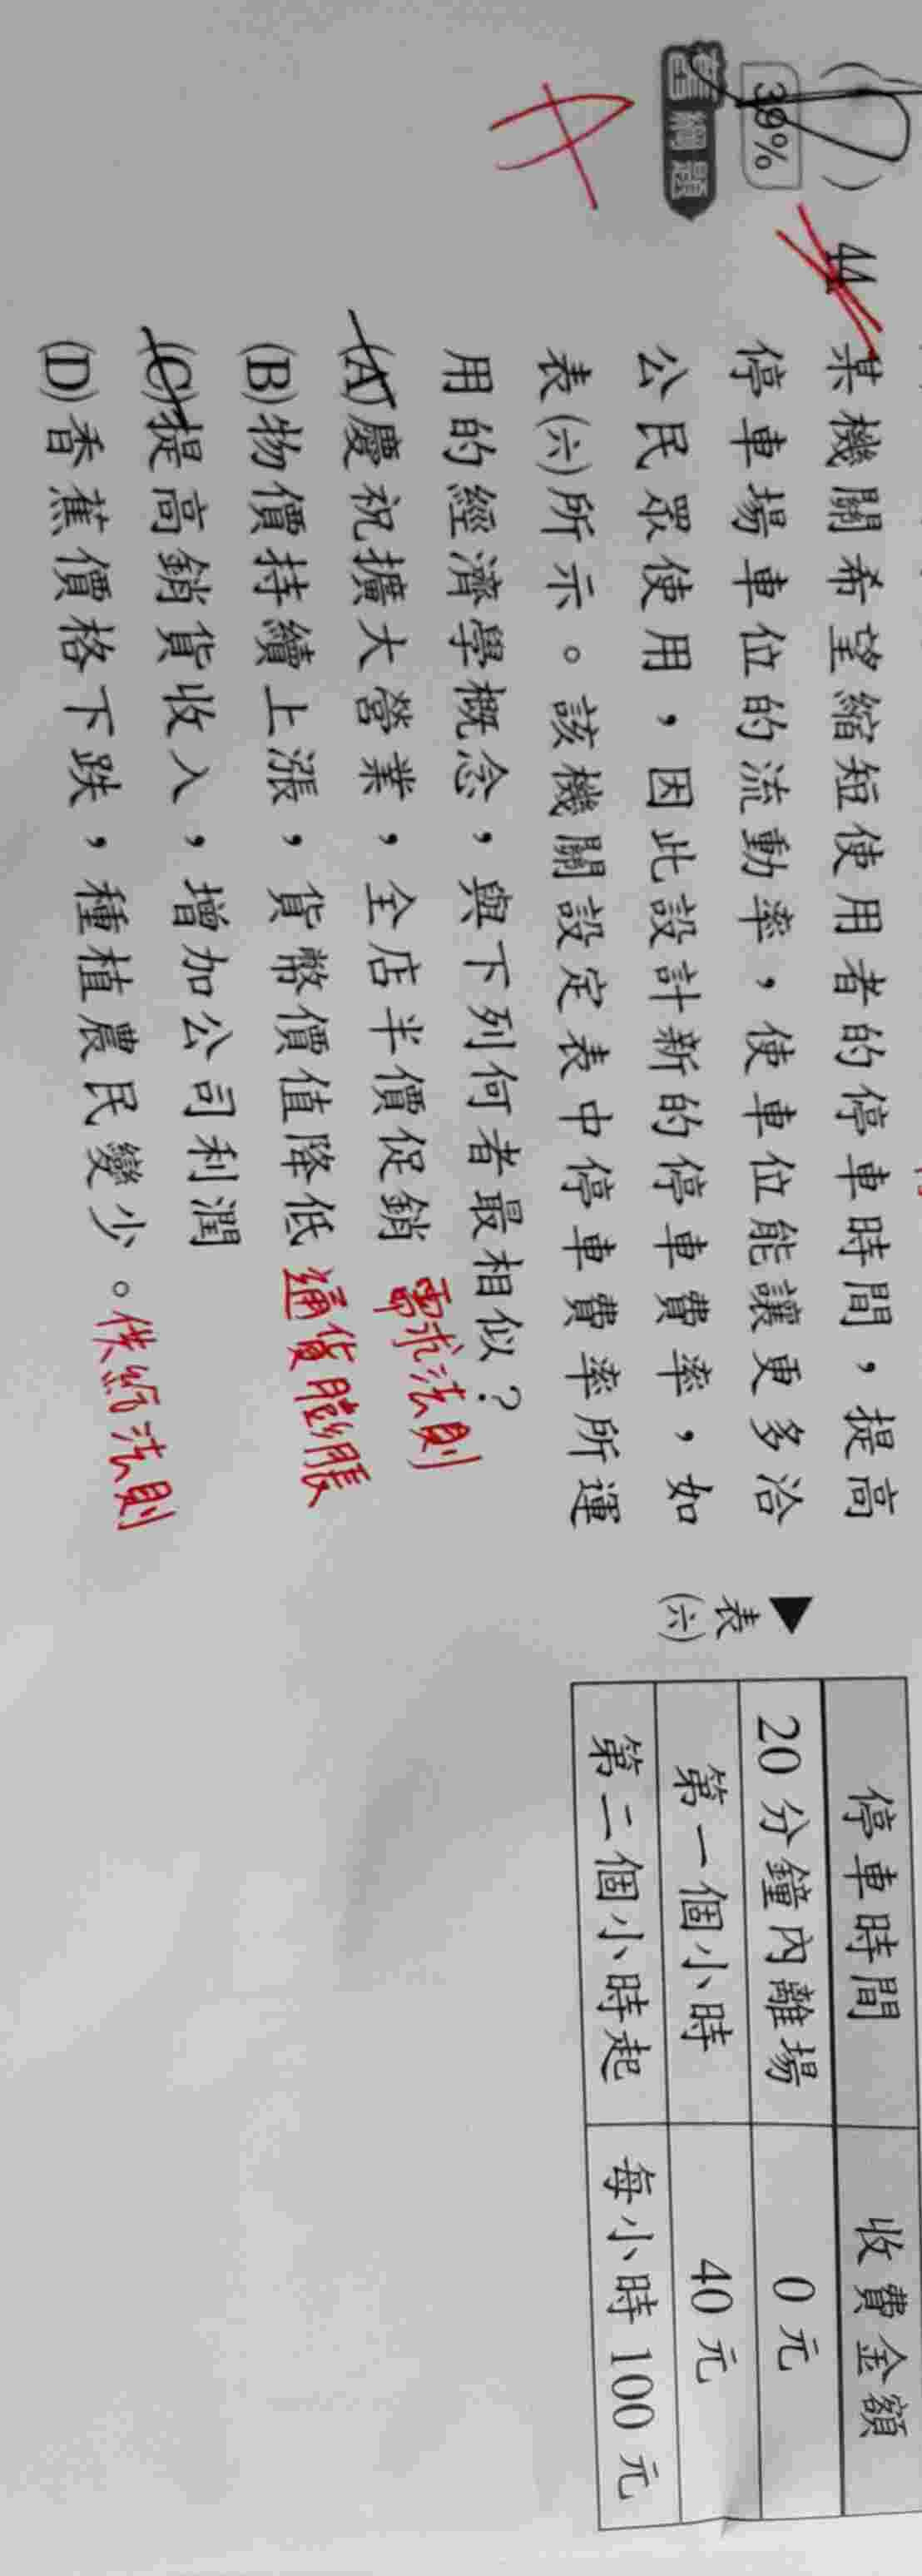 ( )44.某機關希望縮短使用者的停車時間，提高
39%
停車場車位的流動率，使車位能讓更多洽
素養題
公民眾使用，因此設計新的停車費率，如
表(六)所示。該機關設定表中停車費率所運
用的經濟學概念，與下列何者最相似？
A
(A)慶祝擴大營業，全店半價促銷 需求法則
(B)物價持續上漲，貨幣價值降低 通貨膨脹
(C)提高銷貨收入，增加公司利潤
(D)香蕉價格下跌，種植農民變少。供給法則
▲表(六)
停車時間 收費金額
20 分鐘內離場 0 元
第一個小時 40 元
第二個小時起 每小時 100 元